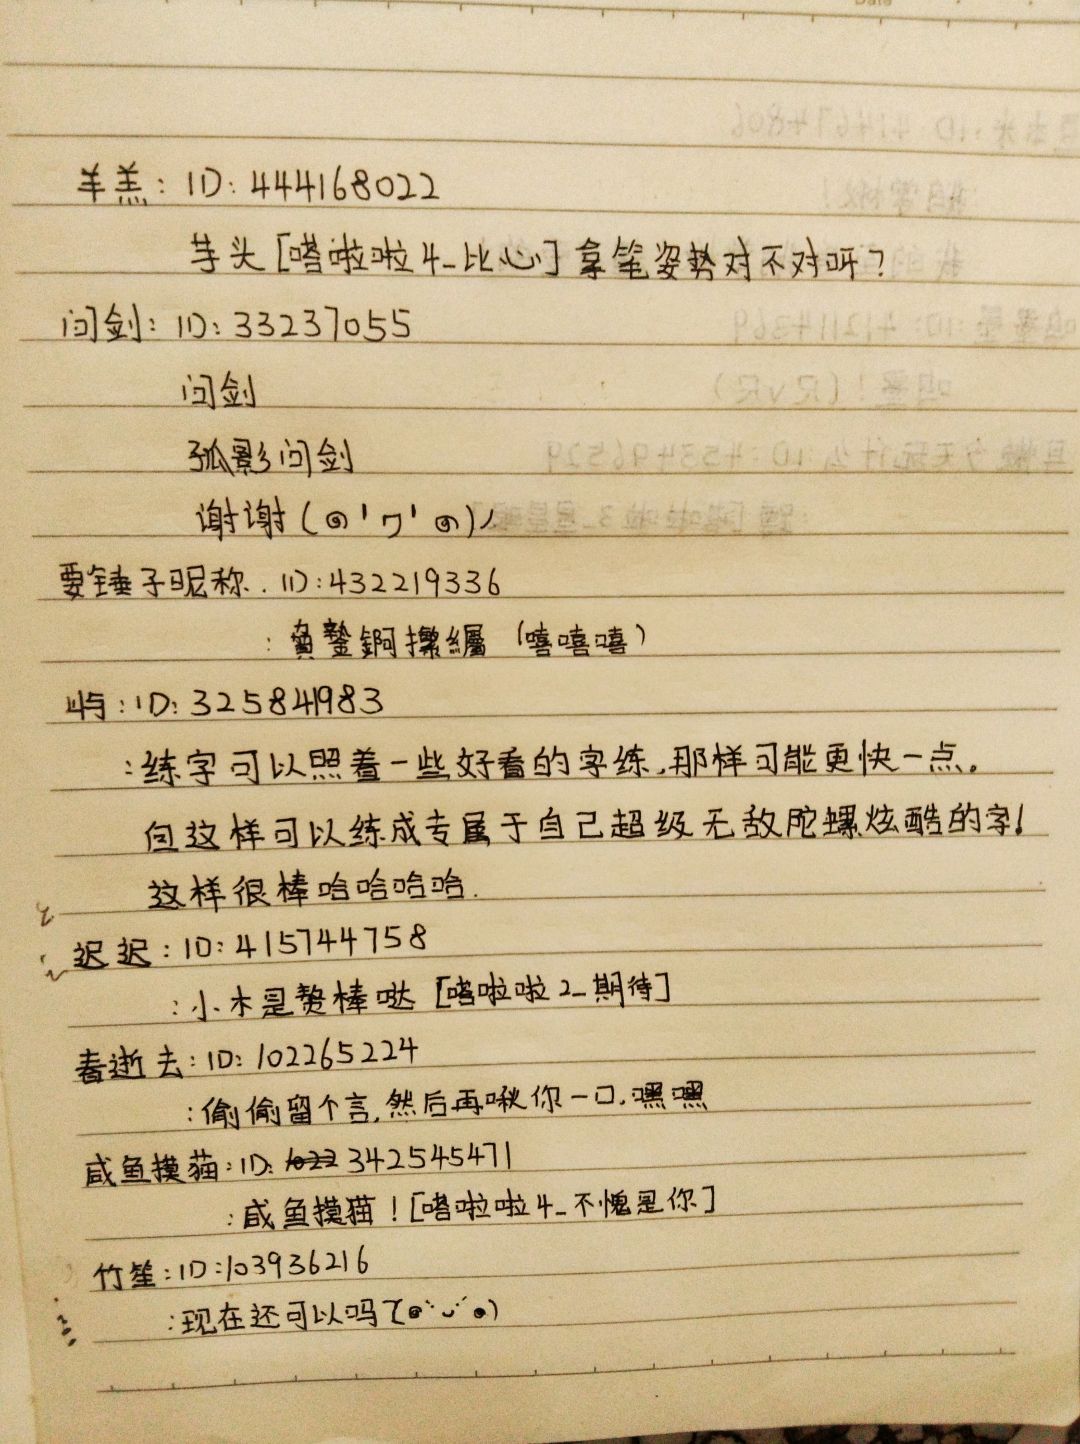 羊羔：ID：444168022
芋头[嗒啦啦4_比心]拿笔姿势对不对呀？
问剑：ID：33237055
问剑
孤影问剑
谢谢(๑'ワ'๑)ﾉ
要锤子昵称．ID：432219336
：（嘻嘻嘻）
屿：ID：325841983
：练字可以照着一些好看的字练,那样可能更快一点。
但这样可以练成专属于自己超级无敌陀螺炫酷的字！
这样很棒哈哈哈哈．
迟迟：ID：415744758
：小木是赞棒哒 [嗒啦啦2_期待]
春逝去：ID：102265224
：偷偷留个言,然后再啾你一口,嘿嘿
咸鱼摸猫：ID：342545471
：咸鱼摸猫！[嗒啦啦4_不愧是你]
竹笙：ID：103936216
：现在还可以吗